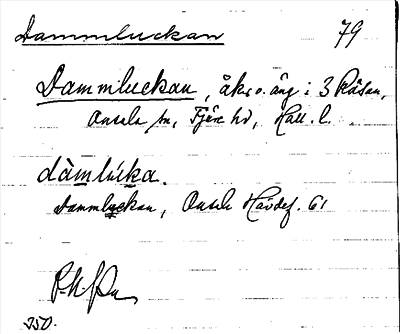 Dammluckan 79
Dammluckan, åker o. äng i 3 Råsan,
Onsala sn, Fjäre hd, Hall. l.
dàmlu̇ka.
Dammluckan, Onsala Hävdef. 61
350.